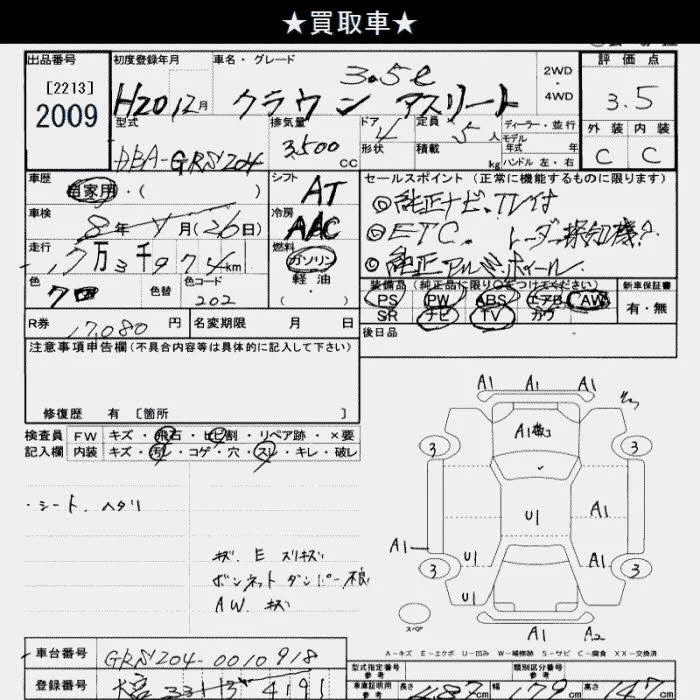 ★買取車★
出品番号
[2213]
2009
初度登録年月
H20 12月
車名・グレード
3.5ℓ
クラウン アスリート
2WD
・
4WD
評価点
3.5
外装 内装
C C
型式
DBA-GRS204
排気量
3,500 cc
ドア 4
形状
定員 5人
積載 kg
ディーラー・並行
モデル年式 年
ハンドル 左・右
車歴
自家用・( )
車検
8年 月(26日)
走行
万3千9 74km
色
クロ
色替
色コード
202
シフト
AT
冷房
AAC
燃料
ガソリン
軽油
( )
セールスポイント (正常に機能するものに限ります)
◎純正ナビ、TV付
◎ETC. レーダー探知機?
◎純正アルミホイール.
装備品(純正品に限り○をつけてください)
PS PW ABS エアB AW
SR ナビ TV カワ
新車保証書
有・無
後日品
R券 17,080円
名変期限 月 日
注意事項申告欄(不具合内容等は具体的に記入して下さい)
修復歴 有 [箇所 ]
検査員
記入欄
FW キズ・飛石・ヒビ割・リペア跡・×要
内装 キズ・汚レ・コゲ・穴・スレ・キレ・破レ
・シート、ヘタリ
キズ、E スリキズ
ボンネットダンパー、不良
AW、キズ
A1 A1 A1
3 3
A1
U1 A1
A1
U1 A1
3 3
U1
A1 A2
スペア
A-キズ E-エクボ U-凹み W-補修跡 S-サビ C-腐食 XX-交換済
車台番号
GRS204-0010918
登録番号
型式指定番号
参考
類別区分番号
参考
車庫証明用
参考
長さ 487cm 幅 179cm 高さ 147cm